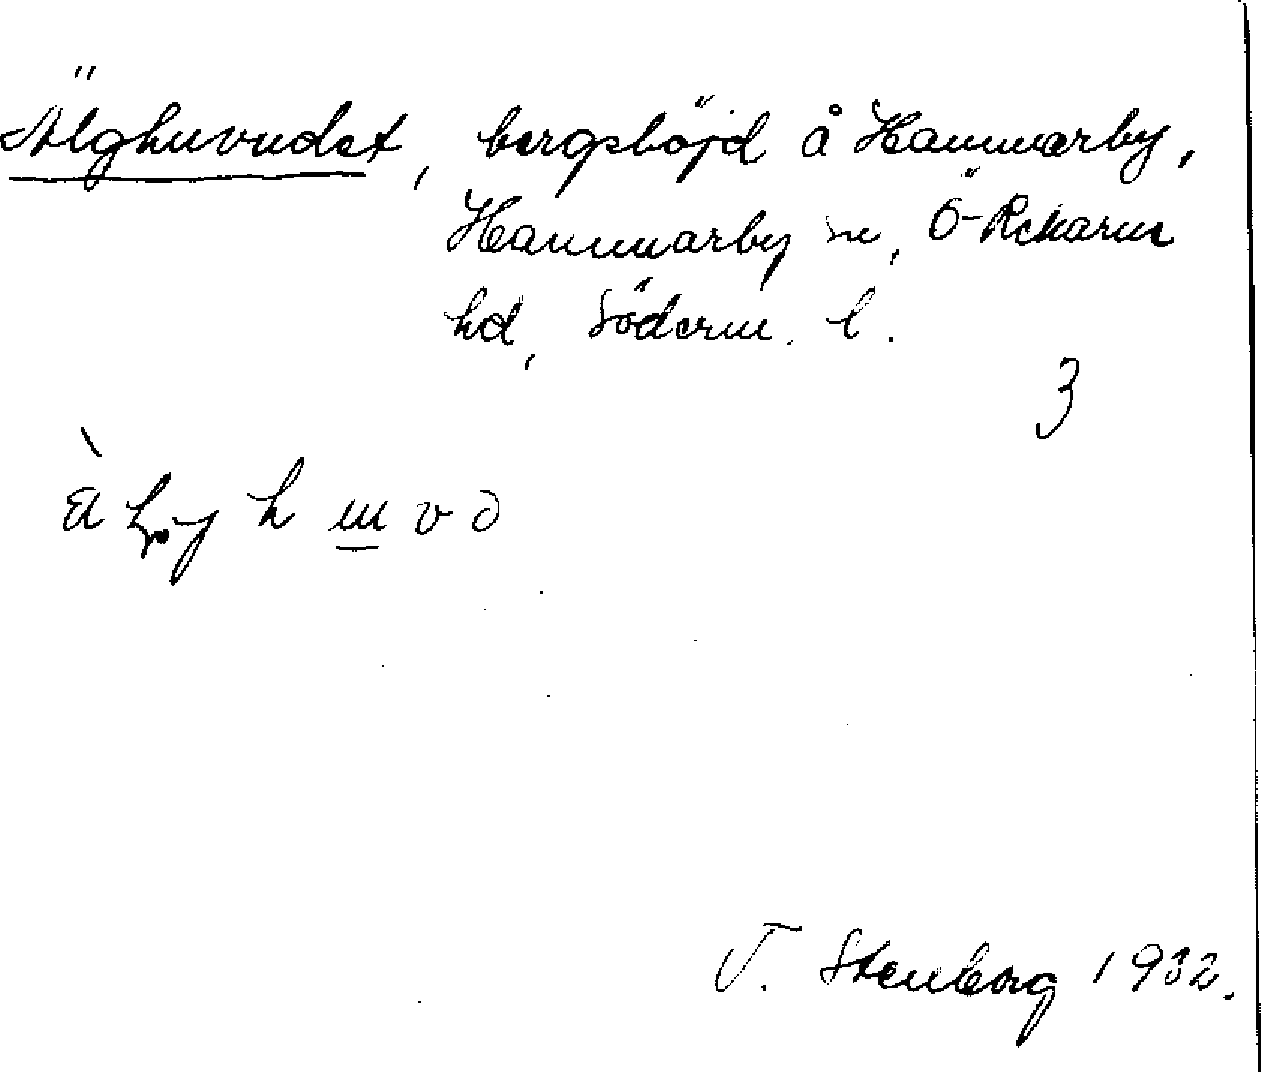 Älghuvudet, bergshöjd å Hammarby,
Hammarby sn, Ö-Rekarne
hd, Söderm. l.
3
T. Stenberg 1932.